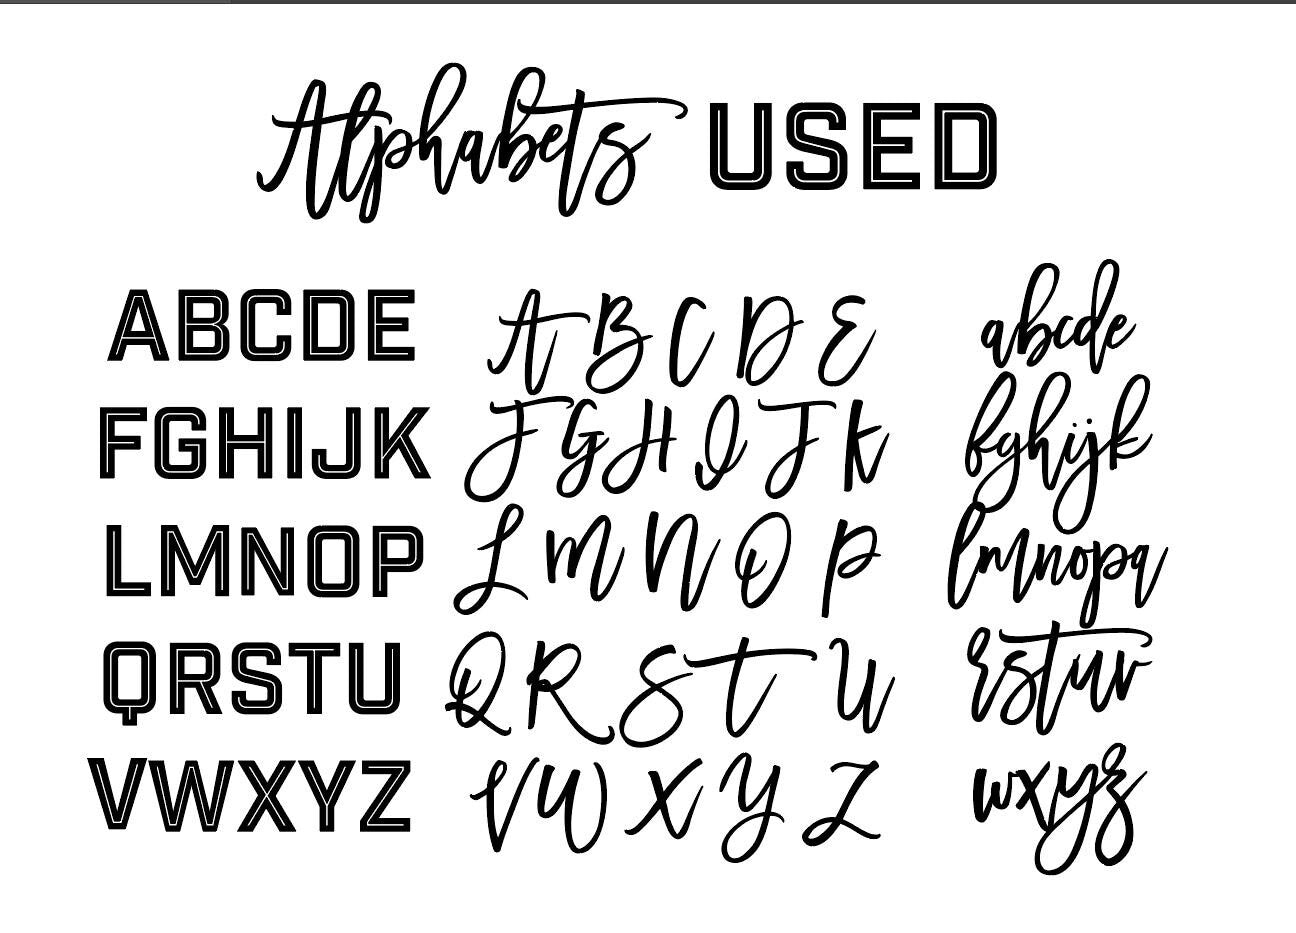 Alphabets USED
ABCDE
FGHIJK
LMNOP
QRSTU
VWXYZ
A B C D E
F G H I J K
L M N O P
Q R S T U
V W X Y Z
abcde
fghijk
lmnopq
rstuv
wxyz